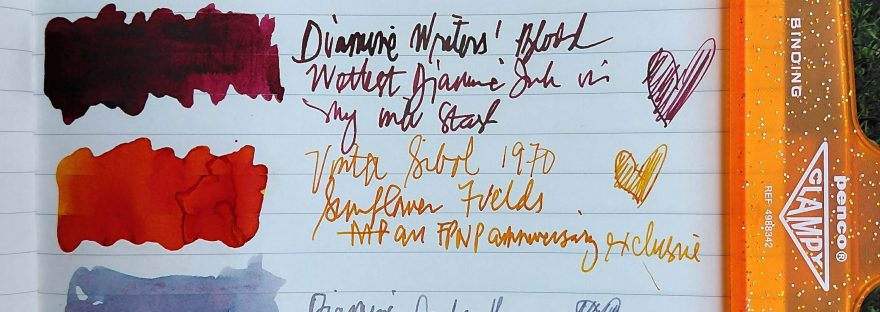 Diamine Writers' Blood
Wettest Diamine Ink in
my ink stash
Vinta Sikol 1970
Sunflower Fields
an FPNP anniversary exclusive
Diamine
BINDING
penco®
CLAMPY
REF: 4988342